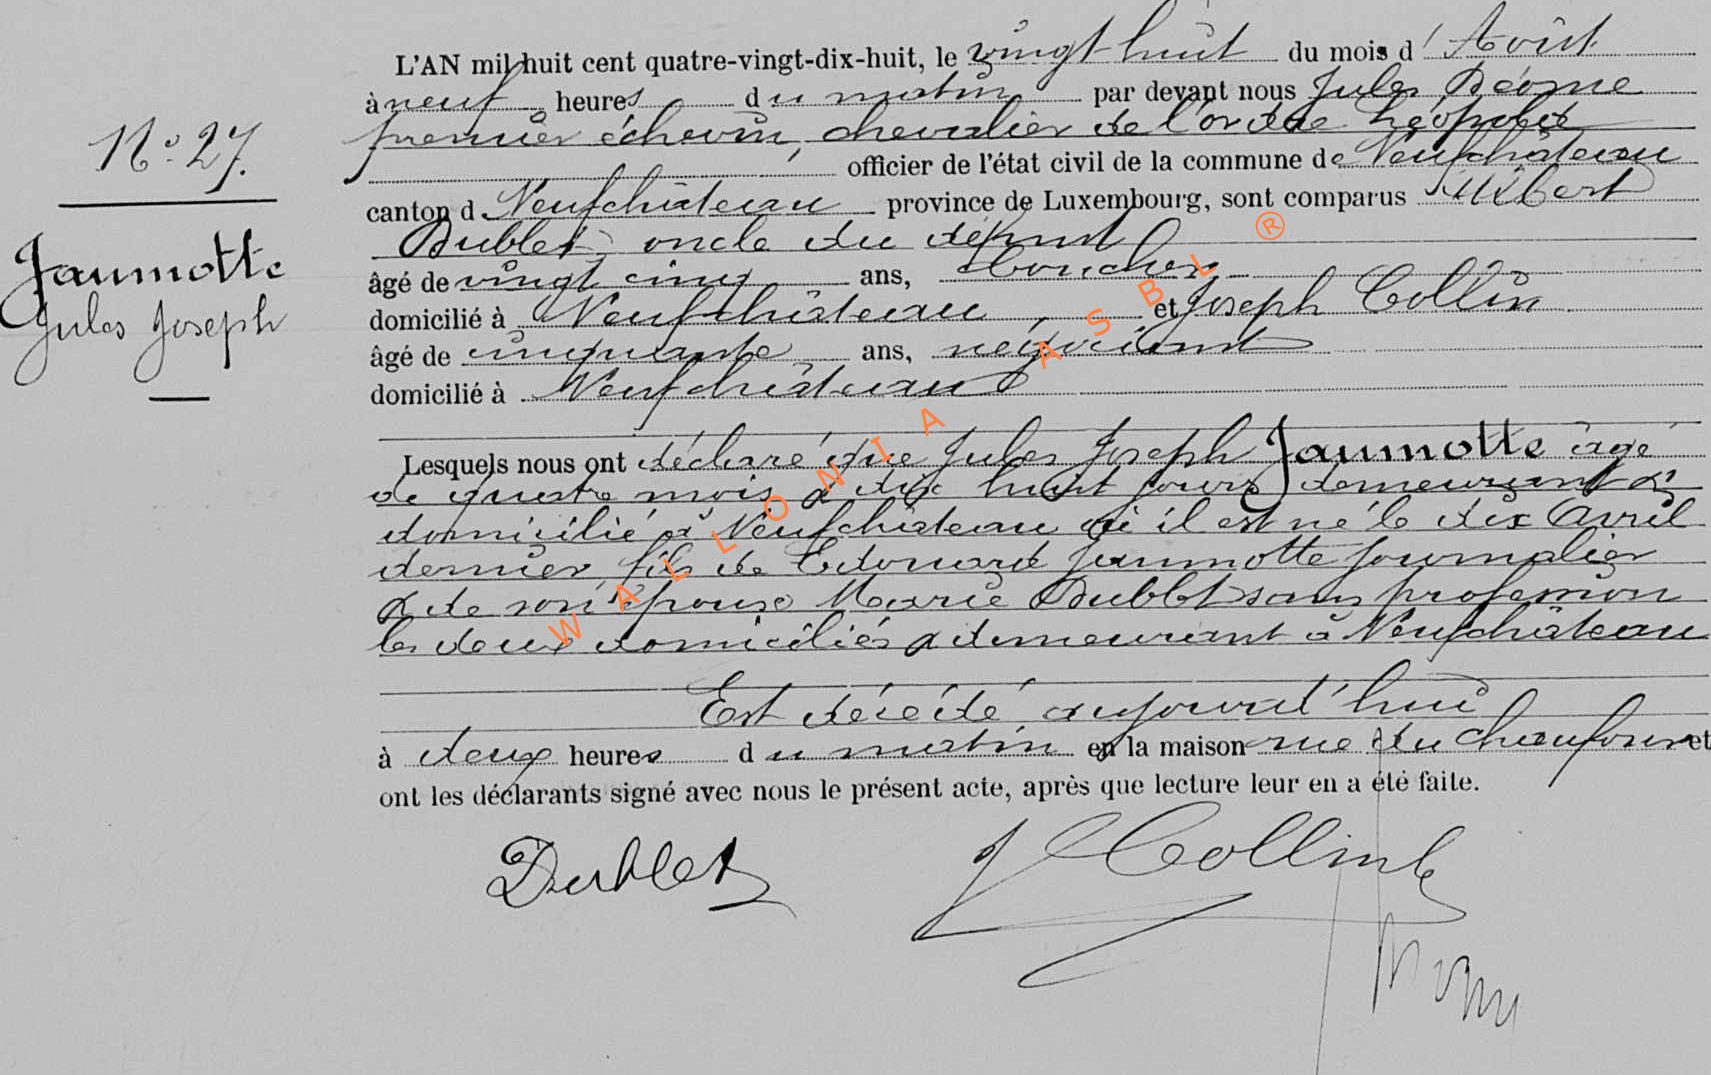 N° 27.
Jaumotte
Jules Joseph
L'AN mil huit cent quatre-vingt-dix-huit, le vingt huit du mois d'Août
à neuf heures du matin par devant nous Jules
premier échevin, chevalier de l'ordre Léopold
officier de l'état civil de la commune de Neufchâteau
canton d Neufchâteau province de Luxembourg, sont comparus
Dublet, oncle du défunt
âgé de vingt cinq ans,
domicilié à Neufchâteau, et Joseph Collin
âgé de cinquante ans, négociant
domicilié à Neufchâteau
Lesquels nous ont déclaré que Jules Joseph Jaumotte âgé
de quatre mois & dix huit jours demeurant &
domicilié à Neufchâteau où il est né le dix Avril
dernier, fils de Edouard Jaumotte journalier
& de son épouse Marie Dublet sans profession
les deux domiciliés & demeurant à Neufchâteau
Est décédé aujourd'hui
à deux heures du matin en la maison rue du Chaufour et
ont les déclarants signé avec nous le présent acte, après que lecture leur en a été faite.
Dublet
J Collin
WALLONIA ASBL ®